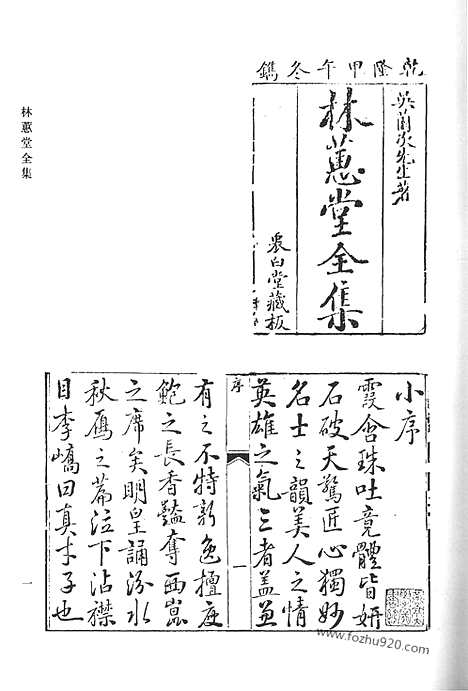 乾隆甲午冬鐫
吴薗次先生著
林蕙堂全集
裒白堂藏板
林蕙堂全集
小序
霞舍珠吐竟體皆妍
石破天驚匠心獨妙
名士之韻美人之情
英雄之氣三者盖兼
序
一
有之不特新逸擅庾
鮑之長香豔奪西崑
之席矣明皇誦汾水
秋雁之篇泣下沾襟
目李嶠曰真才子也
一
www.fozhu920.com